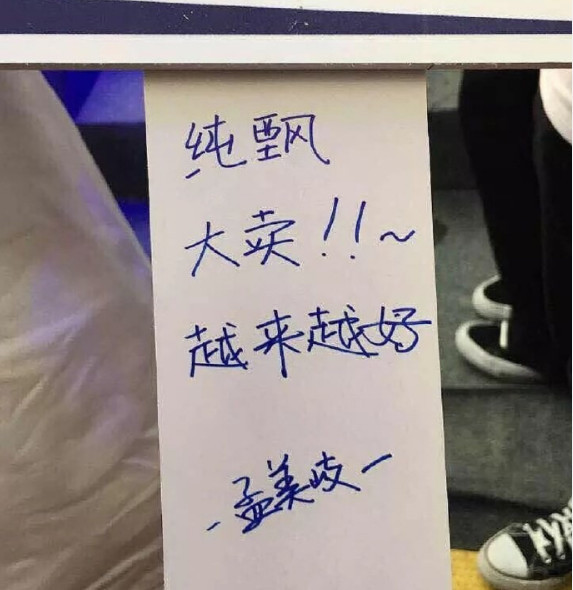 纯飘
大卖!!~
越来越好
孟美岐